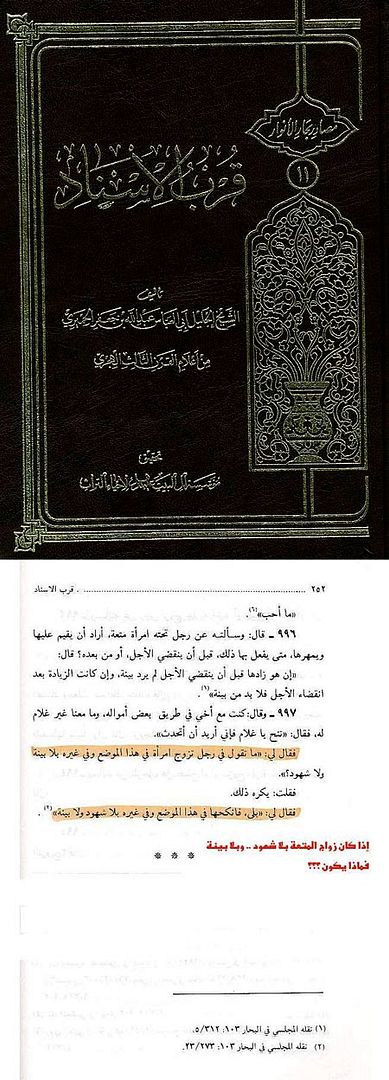 مصادر بحار الأنوار
١١
قرب الإسناد
تأليف
الشيخ الجليل أبي العباس عبد الله بن جعفر الحميري
من أعلام القرن الثالث الهجري
تحقيق
مؤسسة آل البيت عليهم السلام لإحياء التراث
٢٥٢ ........ قرب الاسناد
«ما أحب»(٦).
٩٩٦ ـ قال: وسألته عن رجل تحته امرأة متعة، أراد أن يقيم عليها
ويمهرها، متى يفعل بها ذلك، قبل أن ينقضي الأجل، أو من بعده؟ قال:
«إن هو زادها قبل أن ينقضي الأجل لم يرد بينة، وإن كانت الزيادة بعد
انقضاء الأجل فلا بد من بينة»(١).
٩٩٧ ـ وقال: كنت مع أخي في طريق بعض أمواله، وما معنا غير غلام
له، فقال: «تنح يا غلام فإني أريد أن أتحدث».
فقال لي: «ما تقول في رجل تزوج امرأة في هذا الموضع وفي غيره بلا بينة
ولا شهود؟».
فقلت: يكره ذلك.
فقال لي: «بلى، فانكحها في هذا الموضع وفي غيره بلا شهود ولا بينة»(٢).
إذا كان زواج المتعة بلا شهود .. وبلا بينة
فماذا يكون ؟؟؟
* * *
(١) نقله المجلسي في البحار ١٠٣: ٥/٣١٢.
(٢) نقله المجلسي في البحار ١٠٣: ٢٣/٢٧٣.